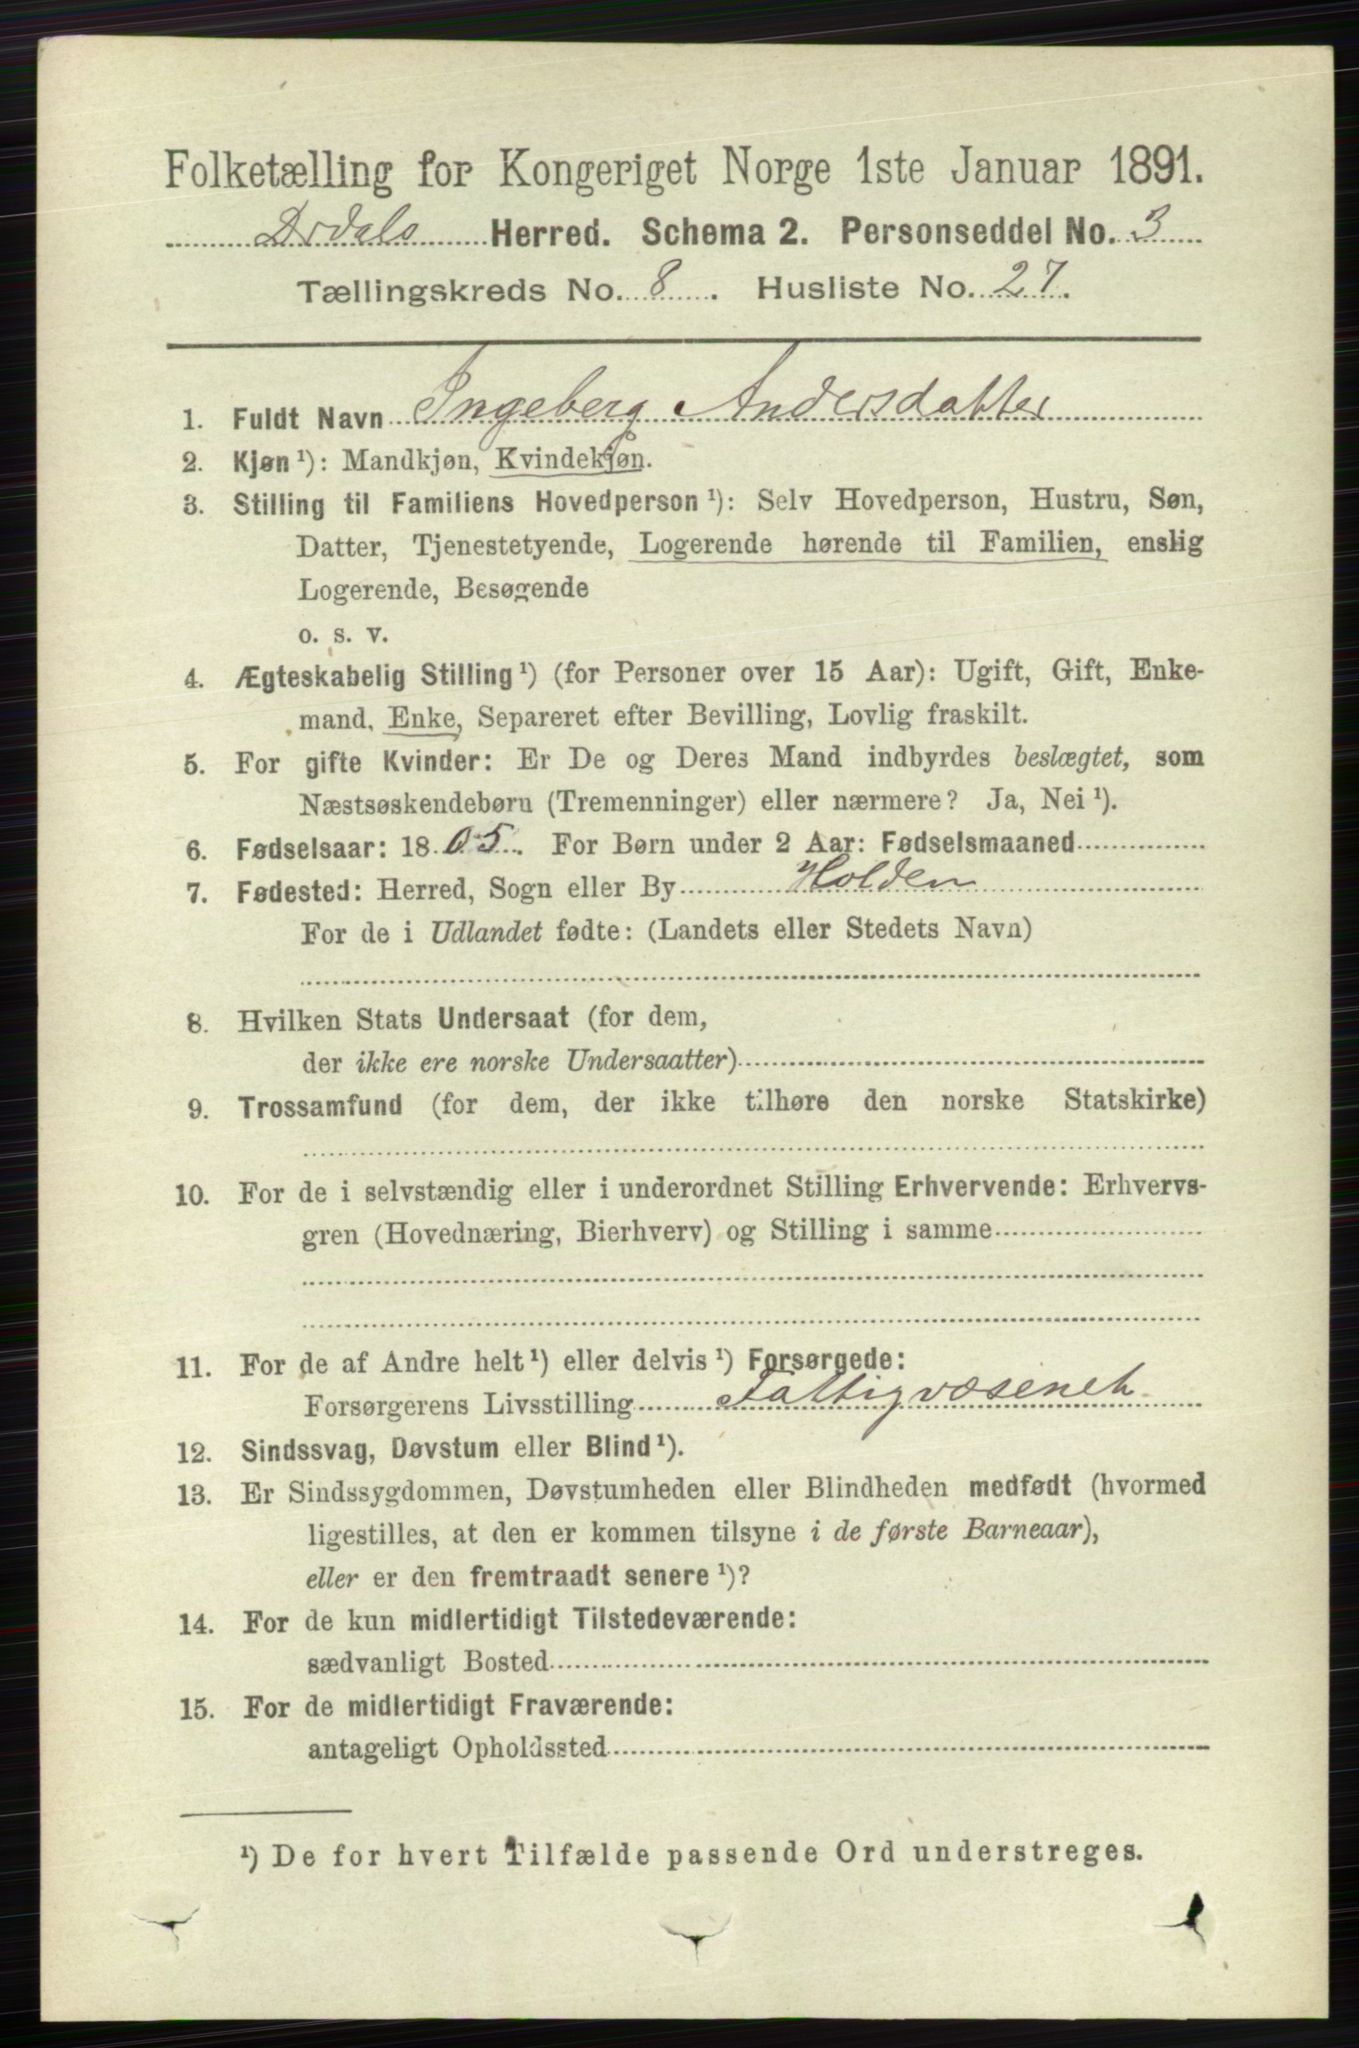 Folketælling for Kongeriget Norge 1ste Januar 1891.
Drdals Herred. Schema 2. Personseddel No. 3
Tællingskreds No. 8. Husliste No. 27.
1. Fuldt Navn Ingeberg Andersdatter
2. Kjøn ¹): Mandkjøn, Kvindekjøn.
3. Stilling til Familiens Hovedperson ¹): Selv Hovedperson, Hustru, Søn,
Datter, Tjenestetyende, Logerende hørende til Familien, enslig
Logerende, Besøgende
o. s. v.
4. Ægteskabelig Stilling ¹) (for Personer over 15 Aar): Ugift, Gift, Enke-
mand, Enke, Separeret efter Bevilling, Lovlig fraskilt.
5. For gifte Kvinder: Er De og Deres Mand indbyrdes beslægtet, som
Næstsøskendebørn (Tremenninger) eller nærmere? Ja, Nei ¹).
6. Fødselsaar: 1805. For Børn under 2 Aar: Fødselsmaaned
7. Fødested: Herred, Sogn eller By Holden
For de i Udlandet fødte: (Landets eller Stedets Navn)
8. Hvilken Stats Undersaat (for dem,
der ikke ere norske Undersaatter)
9. Trossamfund (for dem, der ikke tilhøre den norske Statskirke)
10. For de i selvstændig eller i underordnet Stilling Erhvervende: Erhvervs-
gren (Hovednæring, Bierhverv) og Stilling i samme
11. For de af Andre helt ¹) eller delvis ¹) Forsørgede:
Forsørgerens Livsstilling Fattigvæsenet
12. Sindssvag, Døvstum eller Blind ¹).
13. Er Sindssygdommen, Døvstumheden eller Blindheden medfødt (hvormed
ligestilles, at den er kommen tilsyne i de første Barneaar),
eller er den fremtraadt senere ¹)?
14. For de kun midlertidigt Tilstedeværende:
sædvanligt Bosted
15. For de midlertidigt Fraværende:
antageligt Opholdssted
¹) De for hvert Tilfælde passende Ord understreges.